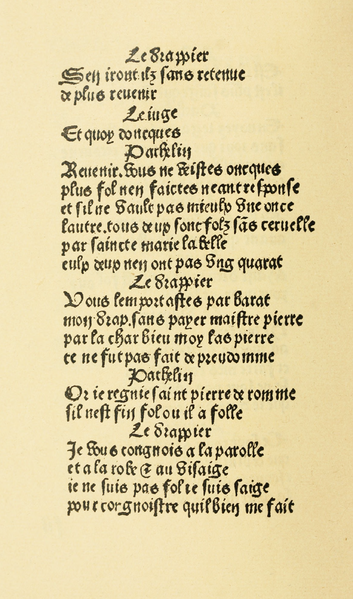 Le drappier
Sen iront ilz sans retenue
de plus reuenir
Le iuge
Et quoy doncques
Pathelin
Reuenir. vous ne vistes oncques
plus fol nen faictes neant response
et sil ne vault pas mieulx vne once
lautre. tous deux sont folz sãs ceruelle
par saincte marie la belle
eulx deux nen ont pas vng quarat
Le drappier
Vous lemportastes par barat
mon drap. sans payer maistre pierre
par la char bieu moy las pierre
ce ne fut pas fait de preudomme
Pathelin
Or ie regnie saint pierre de romme
sil nest fin fol ou il a folle
Le drappier
Je vous congnois a la parolle
et a la robe & au visaige
ie ne suis pas fol ie suis saige
pour congnoistre qui bien me fait